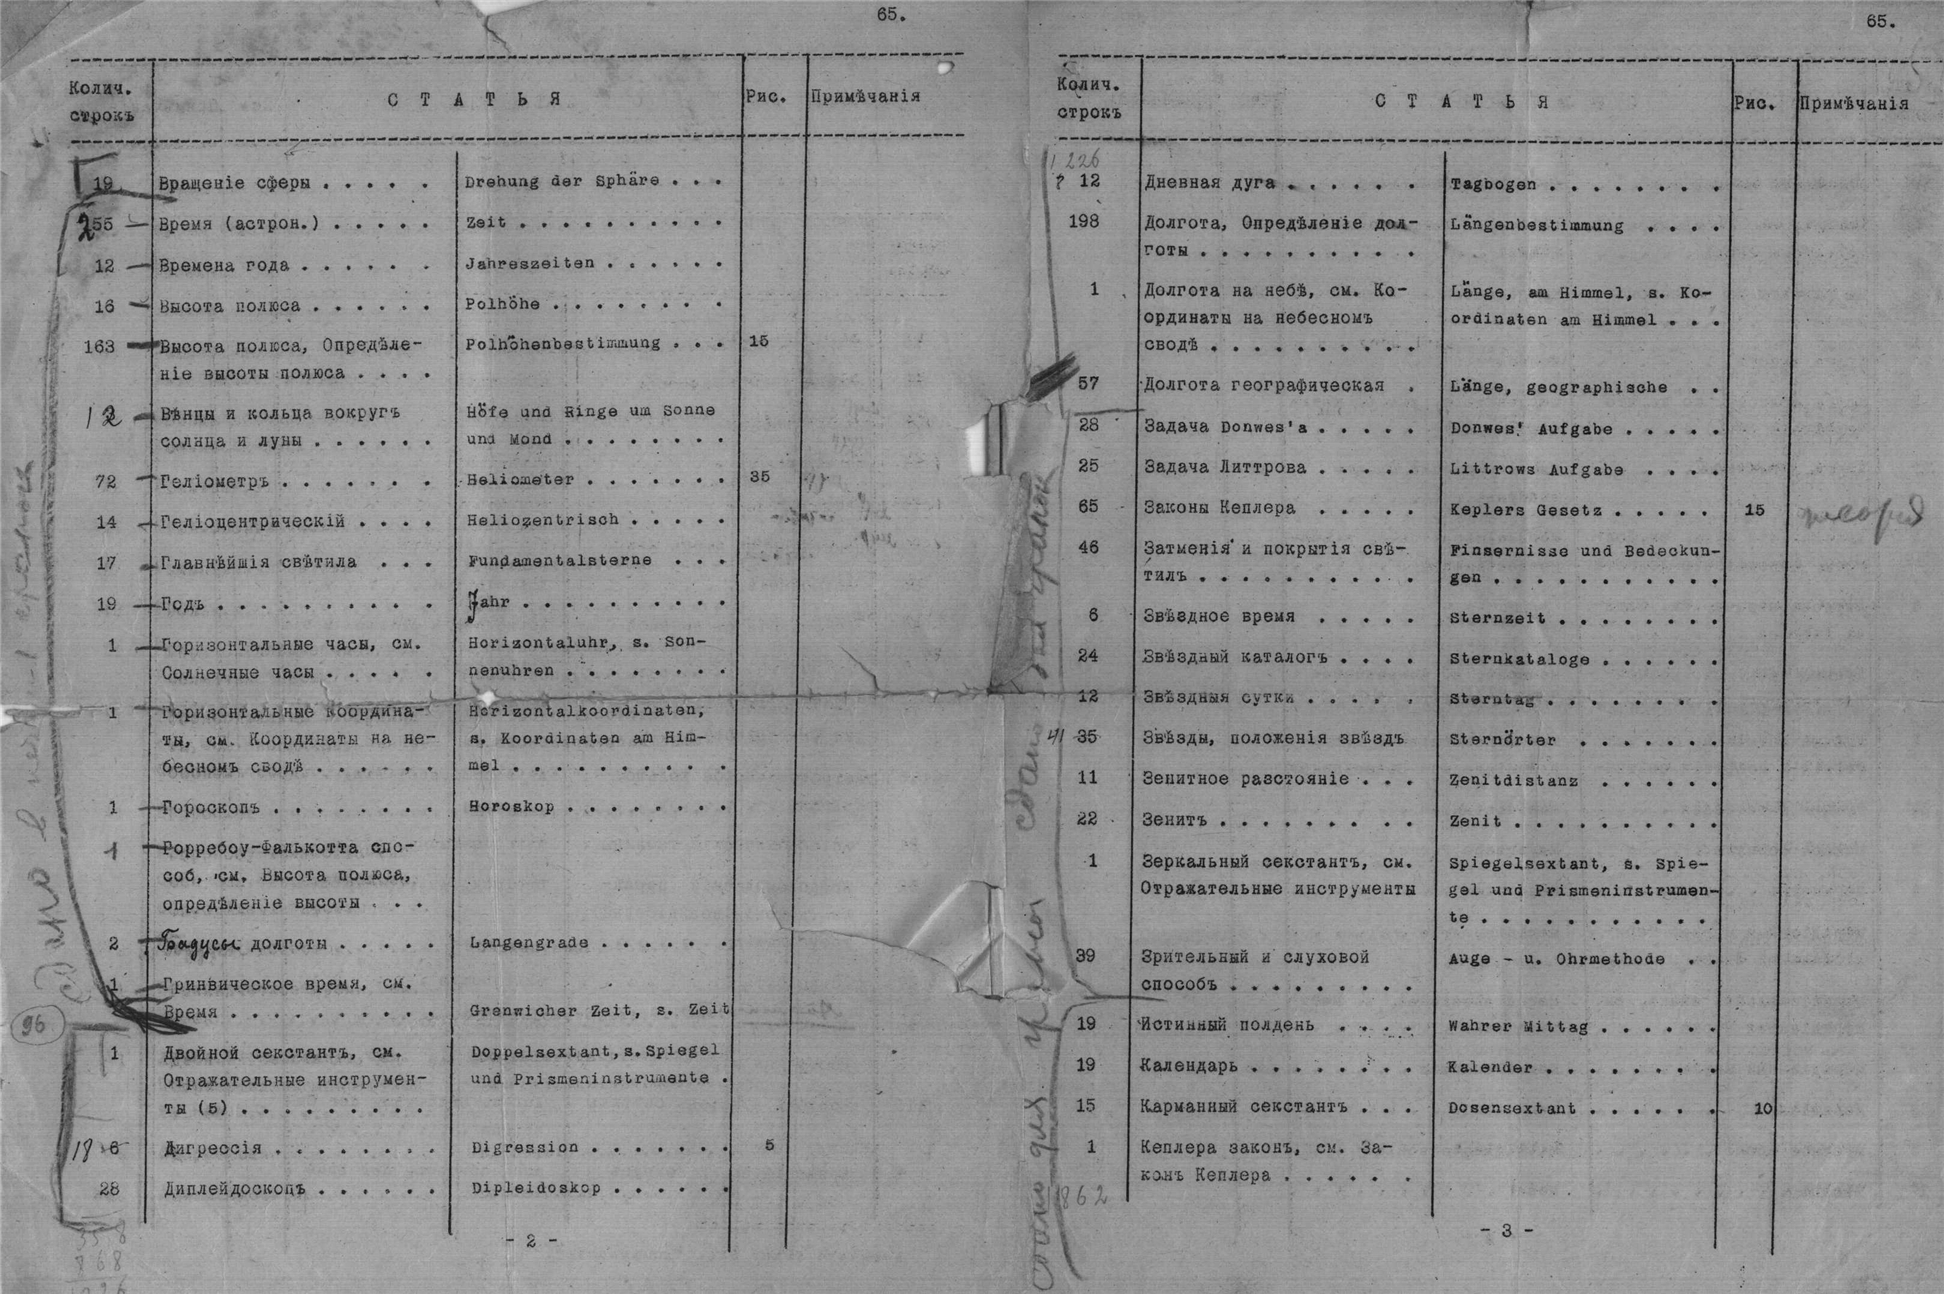 65.
Колич. строкъ СТАТЬЯ Рис. Примѣчанія
19 Вращеніе сферы . . . . . Drehung der Sphäre . . .
255 Время (астрон.) . . . . . Zeit . . . . . . . . . .
12 Времена года . . . . . . Jahreszeiten . . . . . .
16 Высота полюса . . . . . . Polhöhe . . . . . . . .
163 Высота полюса, Опредѣле- Polhöhenbestimmung . . . 15
ніе высоты полюса . . . .
12 Вѣнцы и кольца вокругъ Höfe und Ringe um Sonne
солнца и луны . . . . . . und Mond . . . . . . . .
72 Геліометръ . . . . . . . Heliometer . . . . . . . 35
14 Геліоцентрическій . . . . Heliozentrisch . . . . .
17 Главнѣйшія свѣтила . . . Fundamentalsterne . . .
19 Годъ . . . . . . . . . . Jahr . . . . . . . . . .
1 Горизонтальные часы, см. Horizontaluhr, s. Son-
Солнечные часы . . . . . nenuhren . . . . . . . .
1 Горизонтальные координа- Horizontalkoordinaten,
ты, см. Координаты на не- s. Koordinaten am Him-
бесномъ сводѣ . . . . . . mel . . . . . . . . . .
1 Гороскопъ . . . . . . . . Horoskop . . . . . . . .
1 Горребоу-Фалькотта спо-
соб, см. Высота полюса,
опредѣленіе высоты . . .
2 Градусы долготы . . . . . Langengrade . . . . . .
1 Гринвическое время, см.
Время . . . . . . . . . . Grenwicher Zeit, s. Zeit
96
1 Двойной секстантъ, см. Doppelsextant, s. Spiegel
Отражательные инструмен- und Prismeninstrumente .
ты (5) . . . . . . . . .
18 6 Дигрессія . . . . . . . . Digression . . . . . . . 5
28 Диплейдоскопъ . . . . . . Dipleidoskop . . . . . .
358
868
- 2 -
65.
Колич. строкъ СТАТЬЯ Рис. Примѣчанія
1226
? 12 Дневная дуга . . . . . . Tagbogen . . . . . . . .
198 Долгота, Опредѣленіе дол- Längenbestimmung . . . .
готы . . . . . . . . . .
1 Долгота на небѣ, см. Ко- Länge, am Himmel, s. Ko-
ординаты на небесномъ ordinaten am Himmel . . .
сводѣ . . . . . . . . . .
57 Долгота географическая . Länge, geographische . .
28 Задача Donwes'a . . . . . Donwes' Aufgabe . . . . .
25 Задача Литтрова . . . . . Littrows Aufgabe . . . .
65 Законы Кеплера . . . . . Keplers Gesetz . . . . . 15 теория
46 Затменія и покрытія свѣ- Finsernisse und Bedeckun-
тилъ . . . . . . . . . . gen . . . . . . . . . . .
6 Звѣздное время . . . . . Sternzeit . . . . . . . .
24 Звѣздный каталогъ . . . . Sternkataloge . . . . . .
12 Звѣздныя сутки . . . . . Sterntag . . . . . . . .
41 35 Звѣзды, положенія звѣздъ Sternörter . . . . . . .
11 Зенитное разстояніе . . . Zenitdistanz . . . . . .
22 Зенитъ . . . . . . . . . Zenit . . . . . . . . . .
1 Зеркальный секстантъ, см. Spiegelsextant, s. Spie-
Отражательные инструменты gel und Prismeninstrumen-
te . . . . . . . . . . .
39 Зрительный и слуховой Auge - u. Ohrmethode . .
способъ . . . . . . . . .
19 Истинный полдень . . . . Wahrer Mittag . . . . . .
19 Календарь . . . . . . . . Kalender . . . . . . . .
15 Карманный секстантъ . . . Dosensextant . . . . . . 10
1 Кеплера законъ, см. За-
конъ Кеплера . . . . . .
862
- 3 -